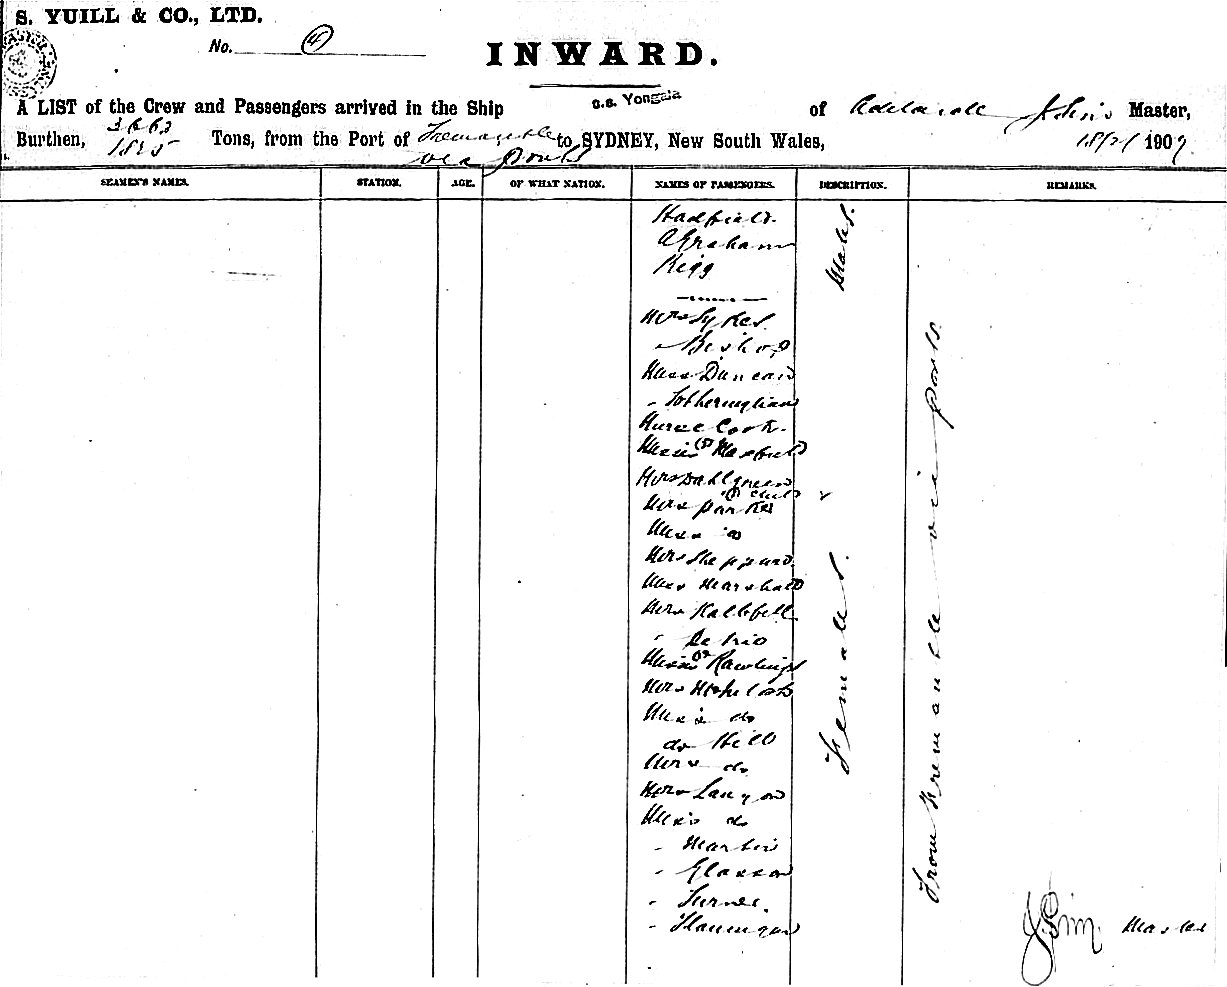 S. YUILL & CO., LTD.
No. (4)
INWARD.
A LIST of the Crew and Passengers arrived in the Ship S.S. Yongala of Adelaide J Sim Master,
Burthen, 3663 Tons, from the Port of Fremantle to SYDNEY, New South Wales, 18/2/ 1907
1825 via ports
SEAMEN'S NAMES. STATION. AGE. OF WHAT NATION. NAMES OF PASSENGERS. DESCRIPTION. REMARKS.
Hadfield.
A Graham
Rigg
Males.
Mrs Sykes.
" Bishop
Miss Duncan
" Fotheringham
Nurse Cook.
Misses (2) Maxfield
Mrs Dahlgreen
& child
Mrs Parkes
Miss do
Mrs Sheppard.
Miss Marshall
Mrs Kallbfell
"
Misses (2) Rawlings
Mrs
Miss do
do Hill
Mrs do
Mrs Lanyon
Miss do
" Martin
" Glasson
" Turner.
" Flannigan
Females.
From Fremantle via ports.
J. Sim. Master